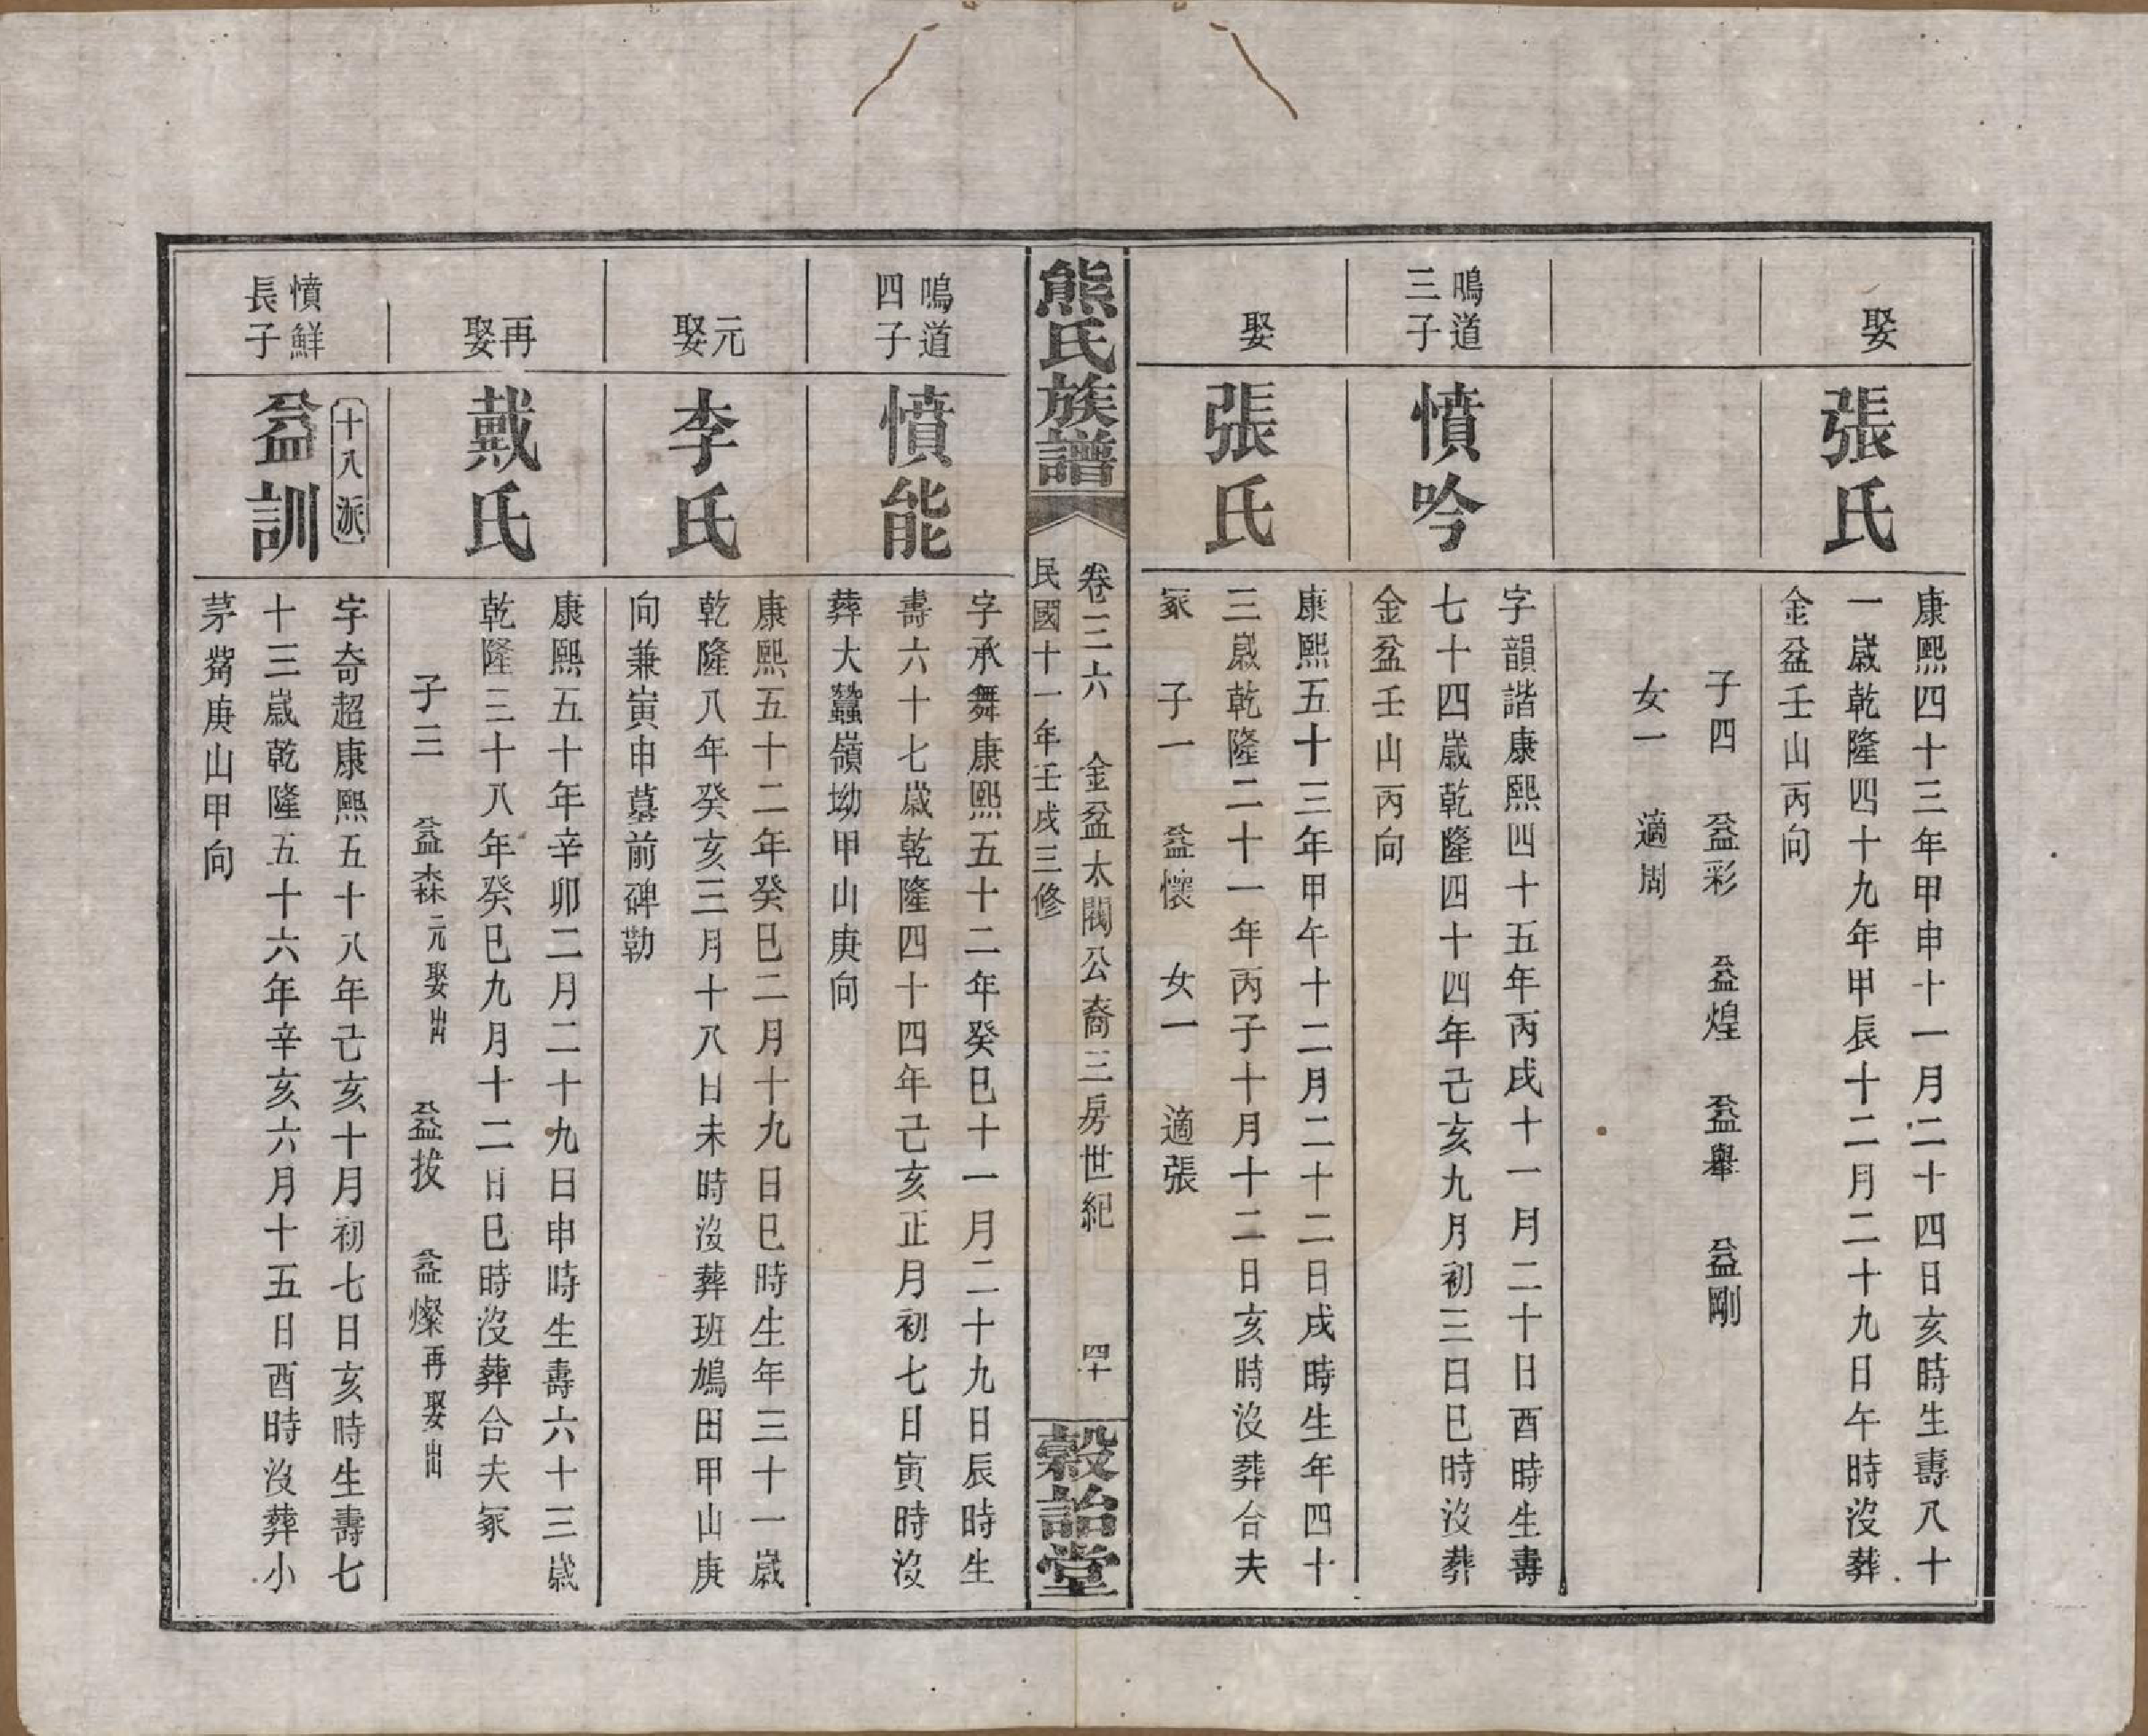 娶
張氏
康熙四十三年甲申十一月二十四日亥時生壽八十
一歲乾隆四十九年甲辰十二月二十九日午時沒葬
金盆壬山丙向
子四 益彩 益煌 益舉 益剛
女一 適周
鳴道
三子
憤吟
字韻諧康熙四十五年丙戌十一月二十日酉時生壽
七十四歲乾隆四十四年己亥九月初三日巳時沒葬
金盆壬山丙向
娶
張氏
康熙五十三年甲午十二月二十二日戌時生年四十
三歲乾隆二十一年丙子十月十二日亥時沒葬合夫
冢 子一 益懷 女一 適張
熊氏族譜
卷三六 金盆太閥公裔三房世紀 四十
民國十一年壬戌三修
穀詒堂
鳴道
四子
憤能
字承舞康熙五十二年癸巳十一月二十九日辰時生
壽六十七歲乾隆四十四年己亥正月初七日寅時沒
葬大蠶嶺坳甲山庚向
元娶
李氏
康熙五十二年癸巳二月十九日巳時生年三十一歲
乾隆八年癸亥三月十八日未時沒葬班鳩田甲山庚
向兼寅申墓前碑勒
再娶
戴氏
康熙五十年辛卯二月二十九日申時生壽六十三歲
乾隆三十八年癸巳九月十二日巳時沒葬合夫冢
子三 益森元娶出 益拔 益燦再娶出
憤鮮
長子
十八派
益訓
字奇超康熙五十八年己亥十月初七日亥時生壽七
十三歲乾隆五十六年辛亥六月十五日酉時沒葬小
茅觜庚山甲向